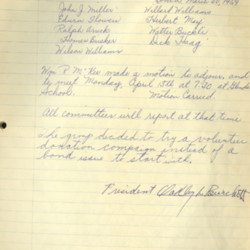 John J. Miller Willard Williams
Edwin Showers Herbert May
Ralph Walter Buckle
Dick Haag
Wilson Williams
Wm. P. McKee made a motion to adjourn and
meet Monday, April 5th at 7:30 at
School. Motion Carried
All committees will report at that time
The group decided to try a volunteer
donation campaign instead of a
bond issue to start with.
President